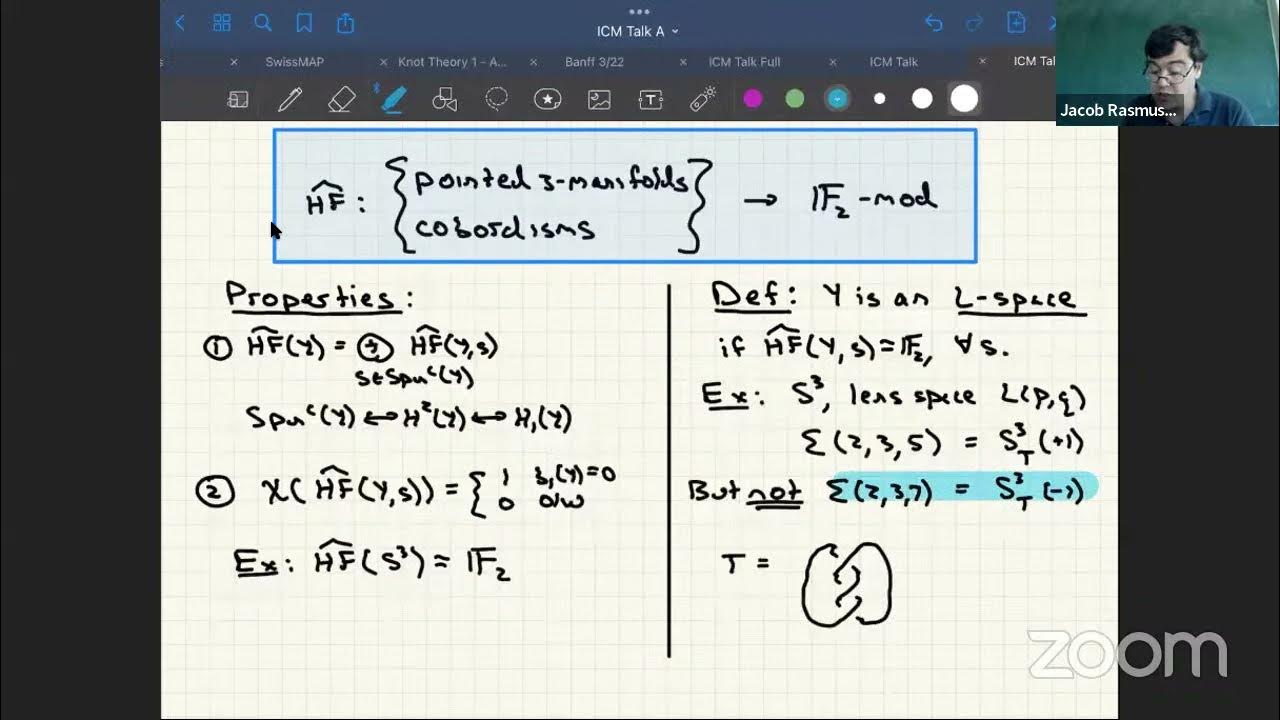 ICM Talk A
SwissMAP
Knot Theory 1 - A...
Banff 3/22
ICM Talk Full
ICM Talk
ICM Tal
Jacob Rasmus...
ĤF : { pointed 3-manifolds
cobordisms } → 𝔽₂-mod
Properties:
① ĤF(Y) = ⊕ ĤF(Y,s)
s∈Spinᶜ(Y)
Spinᶜ(Y) ↔ H²(Y) ↔ H₁(Y)
② χ(ĤF(Y,s)) = { 1 b₁(Y)=0
0 o/w
Ex: ĤF(S³) = 𝔽₂
Def: Y is an L-space
if ĤF(Y,s) = 𝔽₂ ∀s.
Ex: S³, lens space L(p,q)
Σ(2,3,5) = S³_T(+1)
But not Σ(2,3,7) = S³_T(-1)
T =
zoom